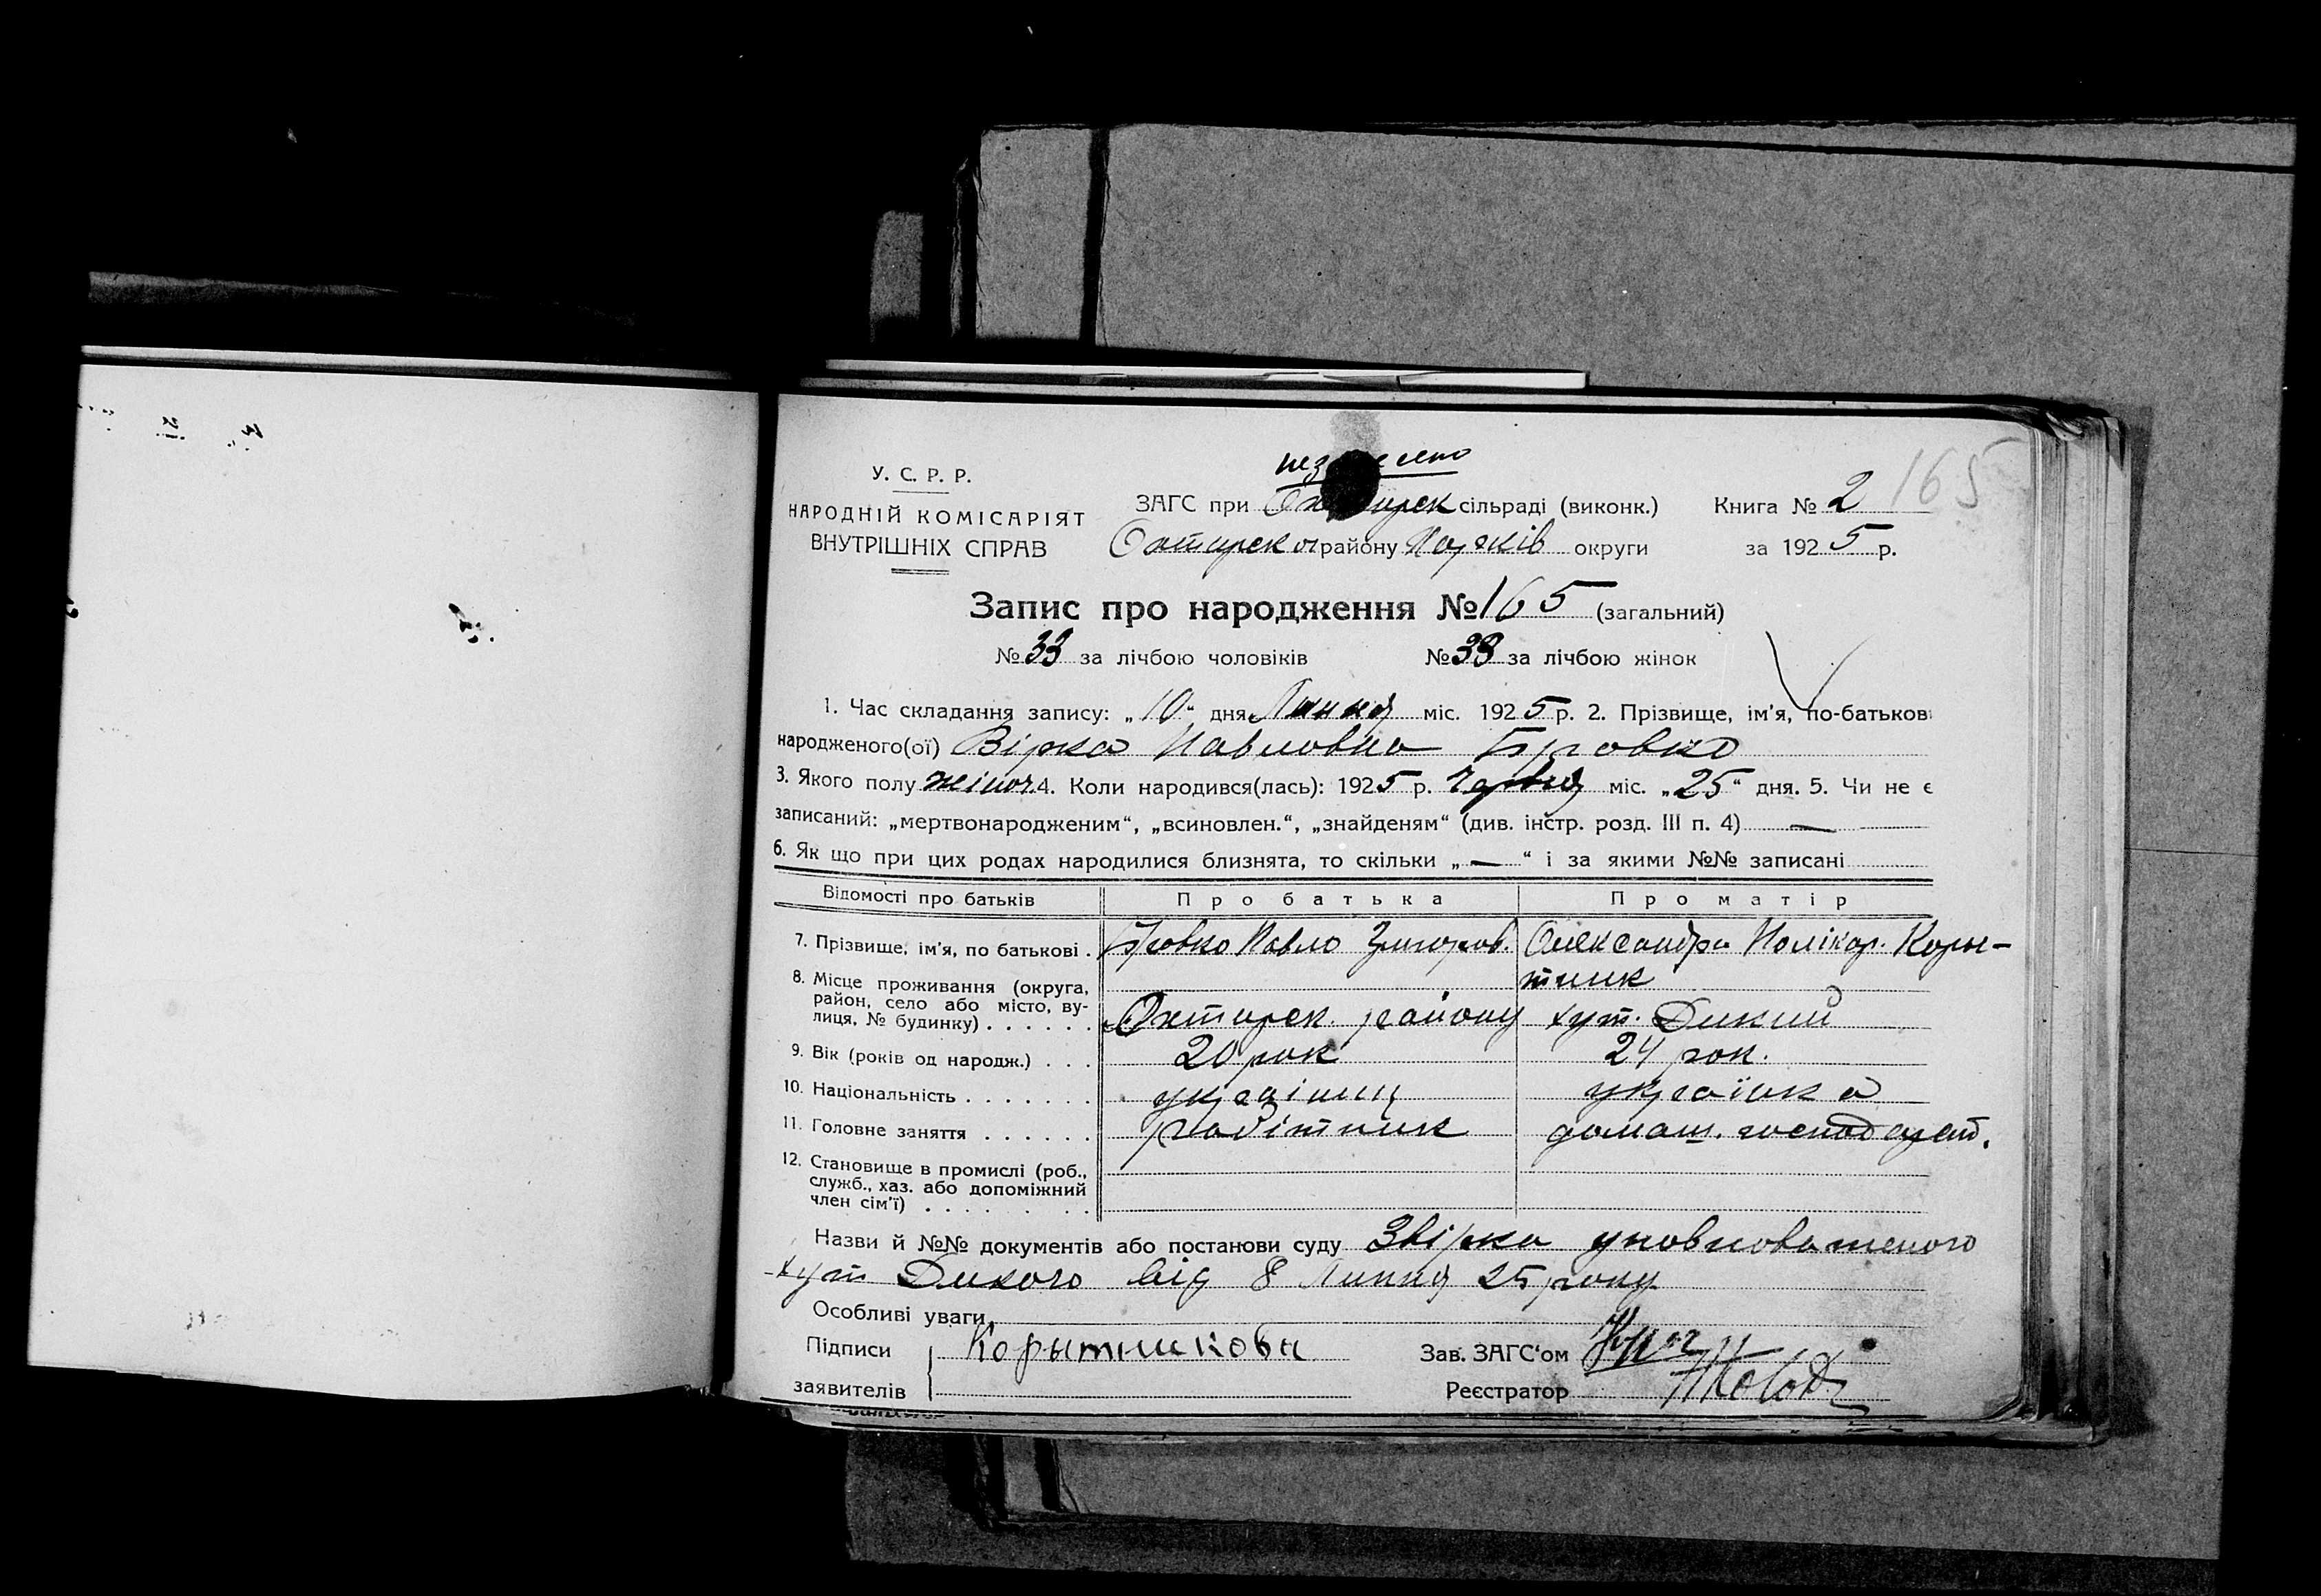 У. С. Р. Р.
НАРОДНІЙ КОМІСАРІЯТ
ВНУТРІШНІХ СПРАВ
ЗАГС при Охтирск сільраді (виконк.) Книга № 2 165
Охтирског району Харків округи за 1925 р.
Запис про народження № 165 (загальний)
№ 33 за лічбою чоловіків № 38 за лічбою жінок
1. Час складання запису: „10“ дня Липня міс. 1925 р. 2. Прізвище, ім'я, по-батькові
народженого(ої) Вірка Павловна Бровко
3. Якого полу жіноч. 4. Коли народився(лась): 1925 р. Червня міс. „25“ дня. 5. Чи не є
записаний: „мертвонародженим“, „всиновлен.“, „знайденям“ (див. інстр. розд. III п. 4) —
6. Як що при цих родах народилися близнята, то скільки „—“ і за якими №№ записані
Відомості про батьків Про батька Про матір
7. Прізвище, ім'я, по батькові . Бровко Павло Григоров. Олександра Полікар. Коры-
тник
8. Місце проживання (округа,
район, село або місто, ву-
лиця, № будинку) . . . . . . Охтирск. району хут. Дикий
9. Вік (років од народж.) . . . 20 рок 24 рок.
10. Національність . . . . . . . українец українка
11. Головне заняття . . . . . . робітник домаш. господарст.
12. Становище в промислі (роб.,
служб., хаз. або допоміжний
член сім'ї) . . . . . . .
Назви й №№ документів або постанови суду Звірка уповноваженого
хут Дикого від 8 Липня 25 року
Особливі уваги
Підписи Корытникова Зав. ЗАГС'ом
заявителів Реєстратор